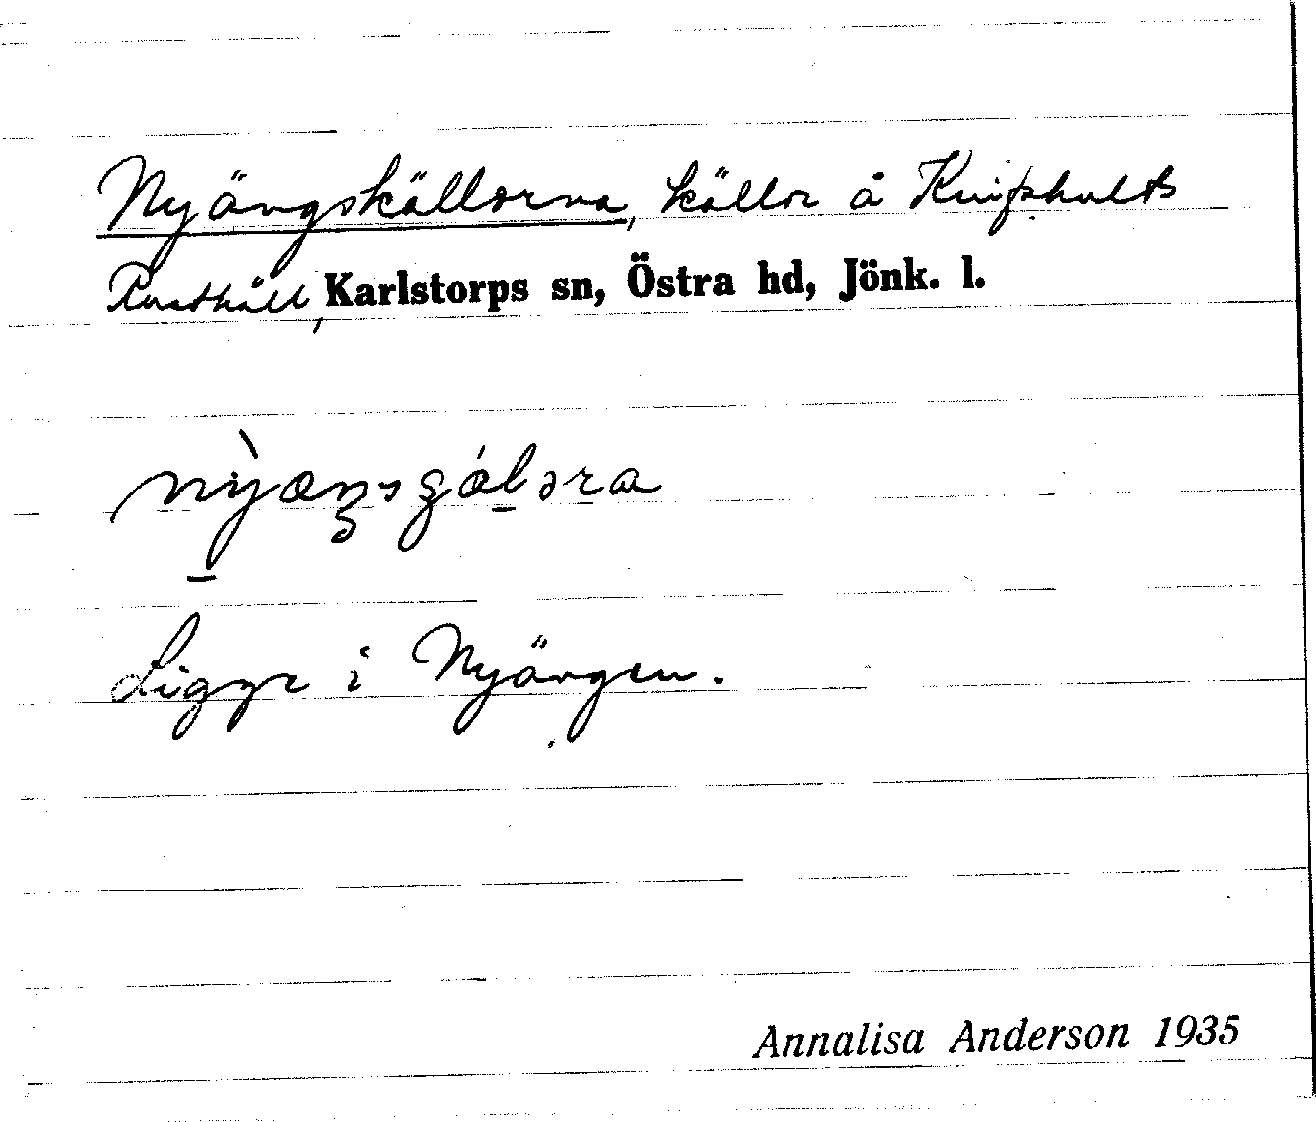 Nyängskällorna, källor å Knipshults
Rusthåll, Karlstorps sn, Östra hd, Jönk. l.
Ligger i Nyängen.
Annalisa Anderson 1935